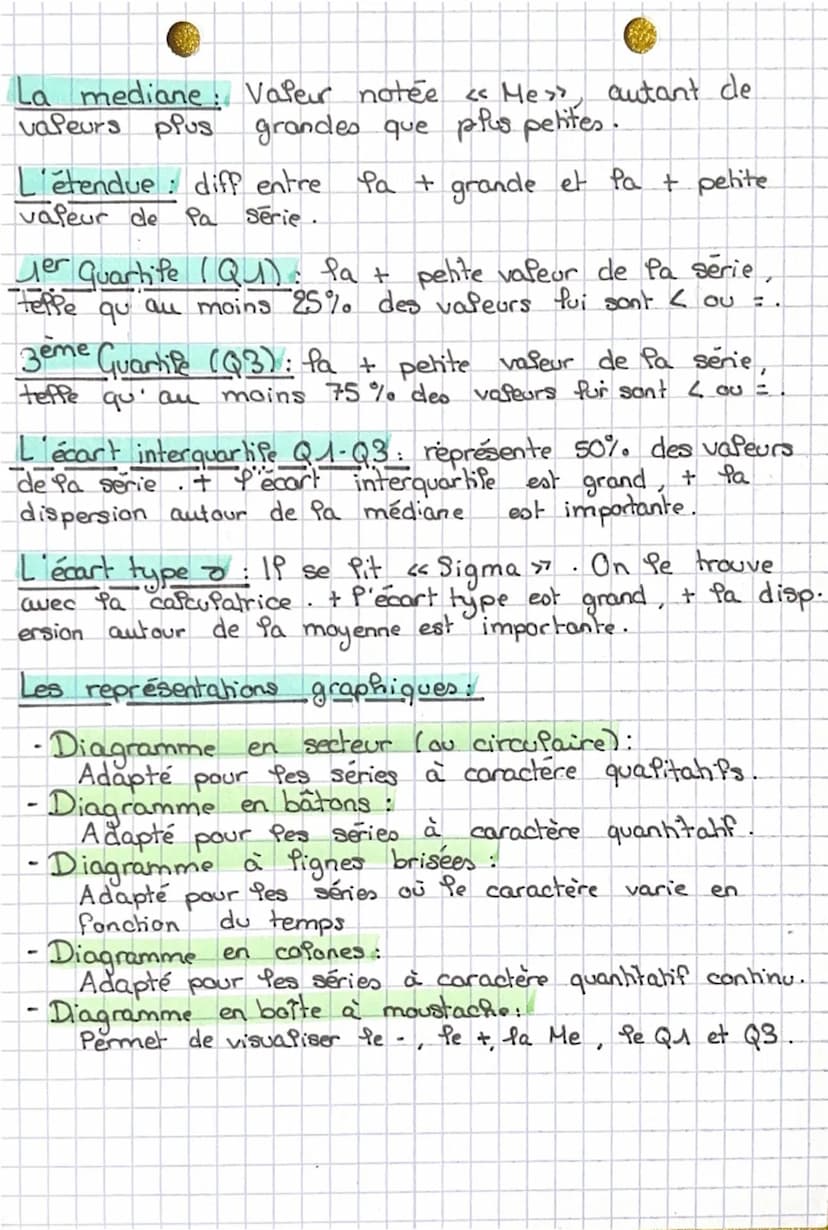 La mediane : Valeur notée << Me >>, autant de
valeurs plus grandes que plus petites.
L'étendue : diff entre la + grande et la + petite
valeur de la série.
1er Quartile (Q1) : la + petite valeur de la série,
telle qu'au moins 25% des valeurs lui sont < ou =.
3ème Quartile (Q3) : la + petite valeur de la série,
telle qu'au moins 75% des valeurs lui sont < ou =.
L'écart interquartile Q1-Q3 : représente 50% des valeurs
de la série. + l'écart interquartile est grand, + la
dispersion autour de la médiane est importante.
L'écart type σ : Il se lit << Sigma >>. On le trouve
avec la calculatrice. + l'écart type est grand, + la disp-
ersion autour de la moyenne est importante.
Les représentations graphiques :
- Diagramme en secteur (ou circulaire) :
Adapté pour les séries à caractère qualitatifs.
- Diagramme en bâtons :
Adapté pour les séries à caractère quantitatif.
- Diagramme à lignes brisées :
Adapté pour les séries où le caractère varie en
fonction du temps
- Diagramme en colones :
Adapté pour les séries à caractère quantitatif continu.
- Diagramme en boîte à moustache :
Permet de visualiser le -, le +, la Me, le Q1 et Q3.